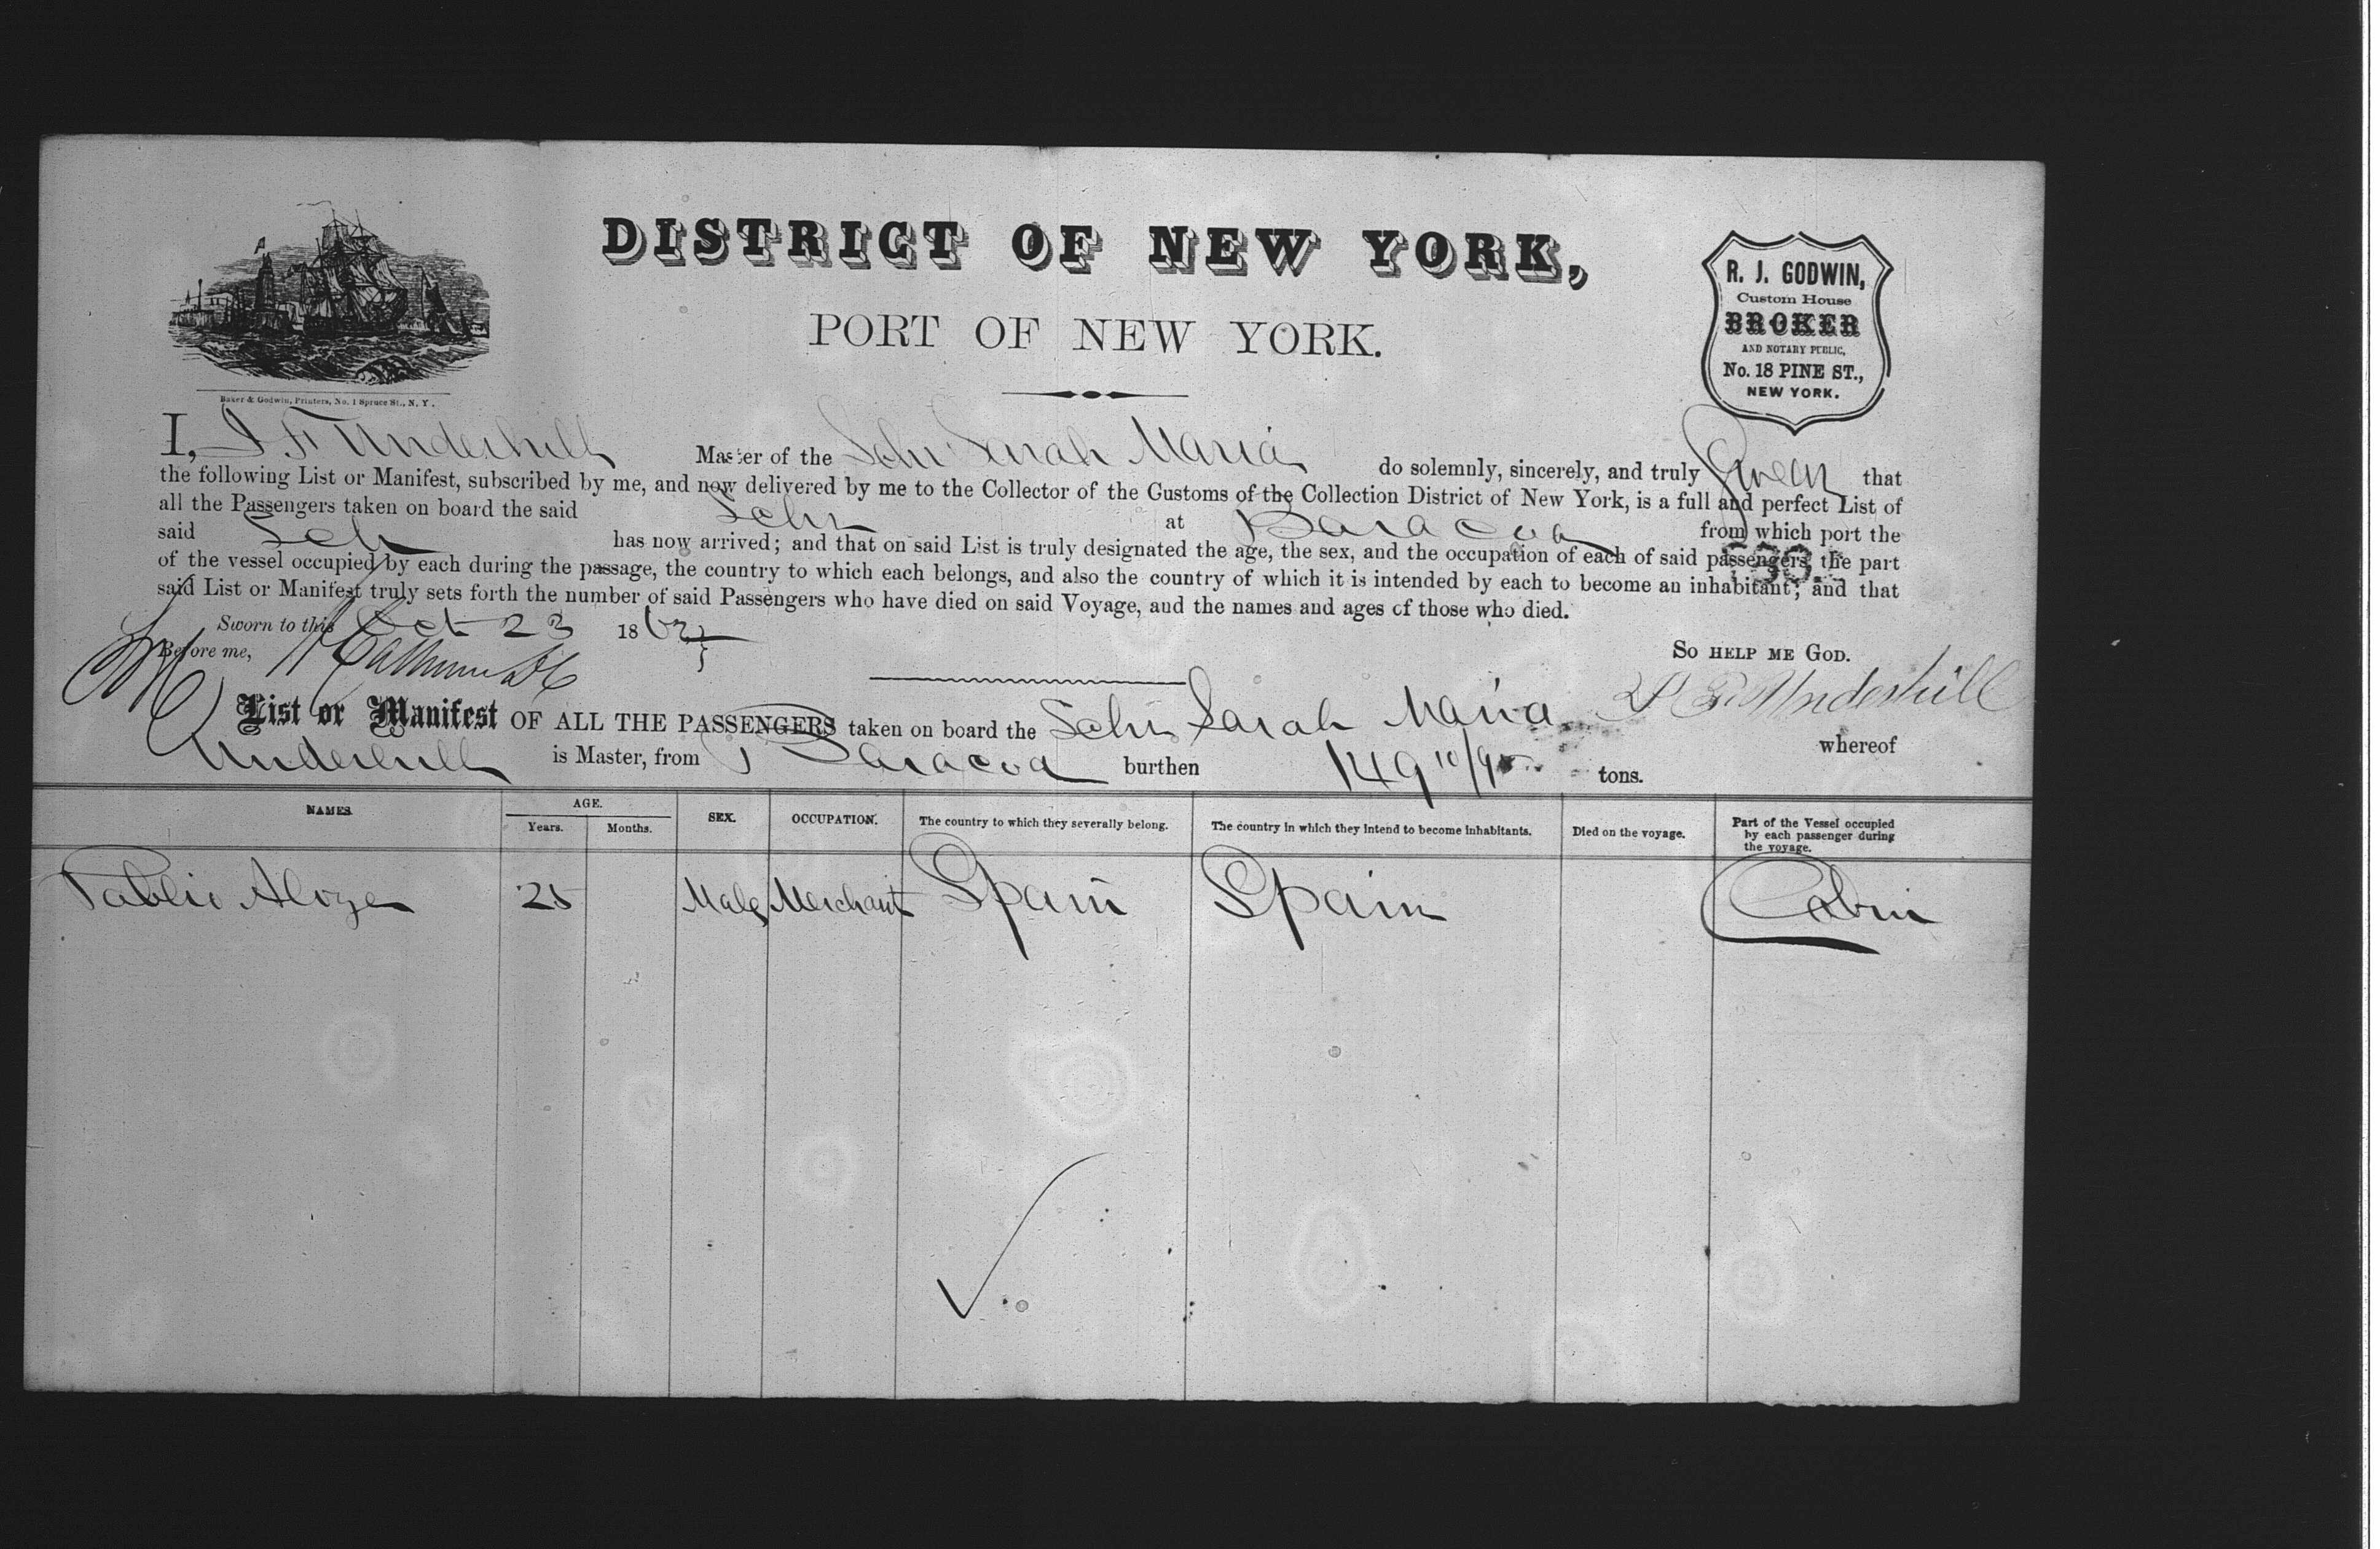 DISTRICT OF NEW YORK,
PORT OF NEW YORK.
R. J. GODWIN,
Custom House
BROKER
AND NOTARY PUBLIC,
No. 18 PINE ST.,
NEW YORK.
Baker & Godwin, Printers, No. 1 Spruce St., N. Y.
I, Underhill Master of the Schr Sarah Maria do solemnly, sincerely, and truly Swear that
the following List or Manifest, subscribed by me, and now delivered by me to the Collector of the Customs of the Collection District of New York, is a full and perfect List of
all the Passengers taken on board the said Schr at Baracoa from which port the
said Schr has now arrived; and that on said List is truly designated the age, the sex, and the occupation of each of said passengers, the part
of the vessel occupied by each during the passage, the country to which each belongs, and also the country of which it is intended by each to become an inhabitant; and that
said List or Manifest truly sets forth the number of said Passengers who have died on said Voyage, and the names and ages of those who died.
Sworn to this Oct 23 186
Before me,
So help me God.
Underhill
List or Manifest OF ALL THE PASSENGERS taken on board the Schr Sarah Maria whereof
Underhill is Master, from Baracoa burthen 149 10/95 tons.
NAMES. AGE. SEX. OCCUPATION. The country to which they severally belong. The country in which they intend to become inhabitants. Died on the voyage. Part of the Vessel occupied by each passenger during the voyage.
Years. Months.
Pablio 25 Male Merchant Spain Spain Cabin